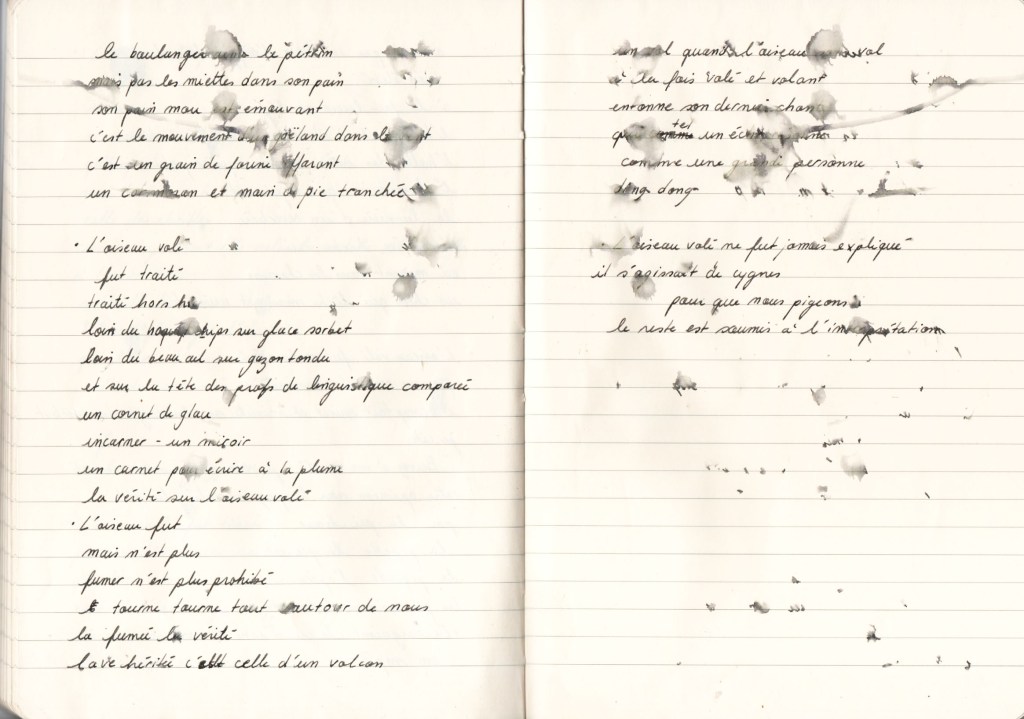 le boulanger le pétrin
mais pas les miettes dans son pain
son pain mou est émouvant
c'est le mouvement du goéland dans le
c'est un grain de farine effarant
un et main de pie tranchée
• L'oiseau volé
fut traité
traité hors
loin du chips sur glace sorbet
loin du beau sur gazon tondu
et sur la tête des profs de linguistique comparée
un cornet de glace
incarner - un miroir
un carnet pour écrire à la plume
la vérité sur l'oiseau volé
• L'oiseau fut
mais n'est plus
fumer n'est plus prohibé
tourne tourne tout autour de nous
la fumée la vérité
lave héritée c'est celle d'un volcan
un vol quand l'oiseau vol
à la fois volé et volant
entonne son dernier chant
tel un
comme une grande personne
ding dong
• L'oiseau volé ne fut jamais expliqué
il s'agissait de cygnes
pour que nous pigeons
le reste est soumis à l'interprétation